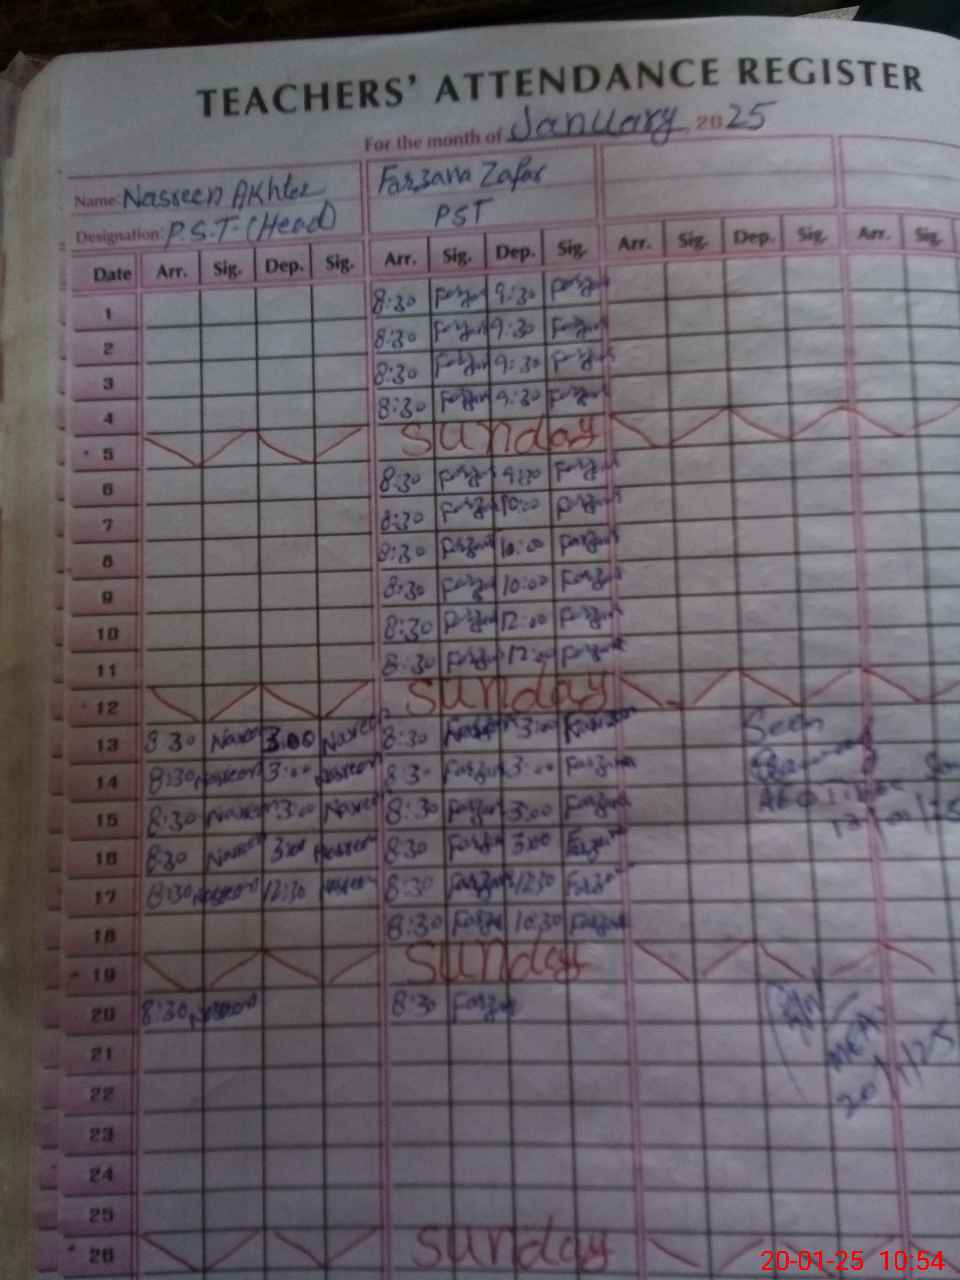 TEACHERS' ATTENDANCE REGISTER
For the month of January, 2025
Name: Nasreen Akhter Farzana Zafar
Designation: P.S.T-(Head) PST
Date Arr. Sig. Dep. Sig. Arr. Sig. Dep. Sig. Arr. Sig. Dep. Sig. Arr. Sig.
1 8:30 Farzan 9:30 Farzan
2 8:30 Farzan 9:30 Farzan
3 8:30 Farzan 9:30 Farzan
4 8:30 Farzan 9:30 Farzan
5 Sunday
6 8:30 Farzan 9:30 Farzan
7 8:30 Farzan 10:00 Farzan
8 8:30 Farzan 10:00 Farzan
9 8:30 Farzan 10:00 Farzan
10 8:30 Farzan 12:00 Farzan
11 8:30 Farzan 12:00 Farzan
12 Sunday
13 8 30 Nasreen 3:00 Nasreen 8:30 3:00 Seen
14 8:30 Nasreen 3:00 Nasreen 8:30 Farzan 3:00 Farzana
15 8:30 Nasreen 3:00 Nasreen 8:30 Farzan 3:00 Farzan
16 8:30 Nasreen 3:00 Nasreen 8:30 Farzan 3:00 Farzan
17 8:30 Nasreen 12:30 Nasreen 8:30 Farzan 12:30 Farzan
18 8:30 Farzan 10:30 Farzan
19 Sunday
20 8:30 Nasreen 8:30 Farzan
21 MEA
22 20/1/25
23
24
25
26 Sunday
20-01-25 10:54